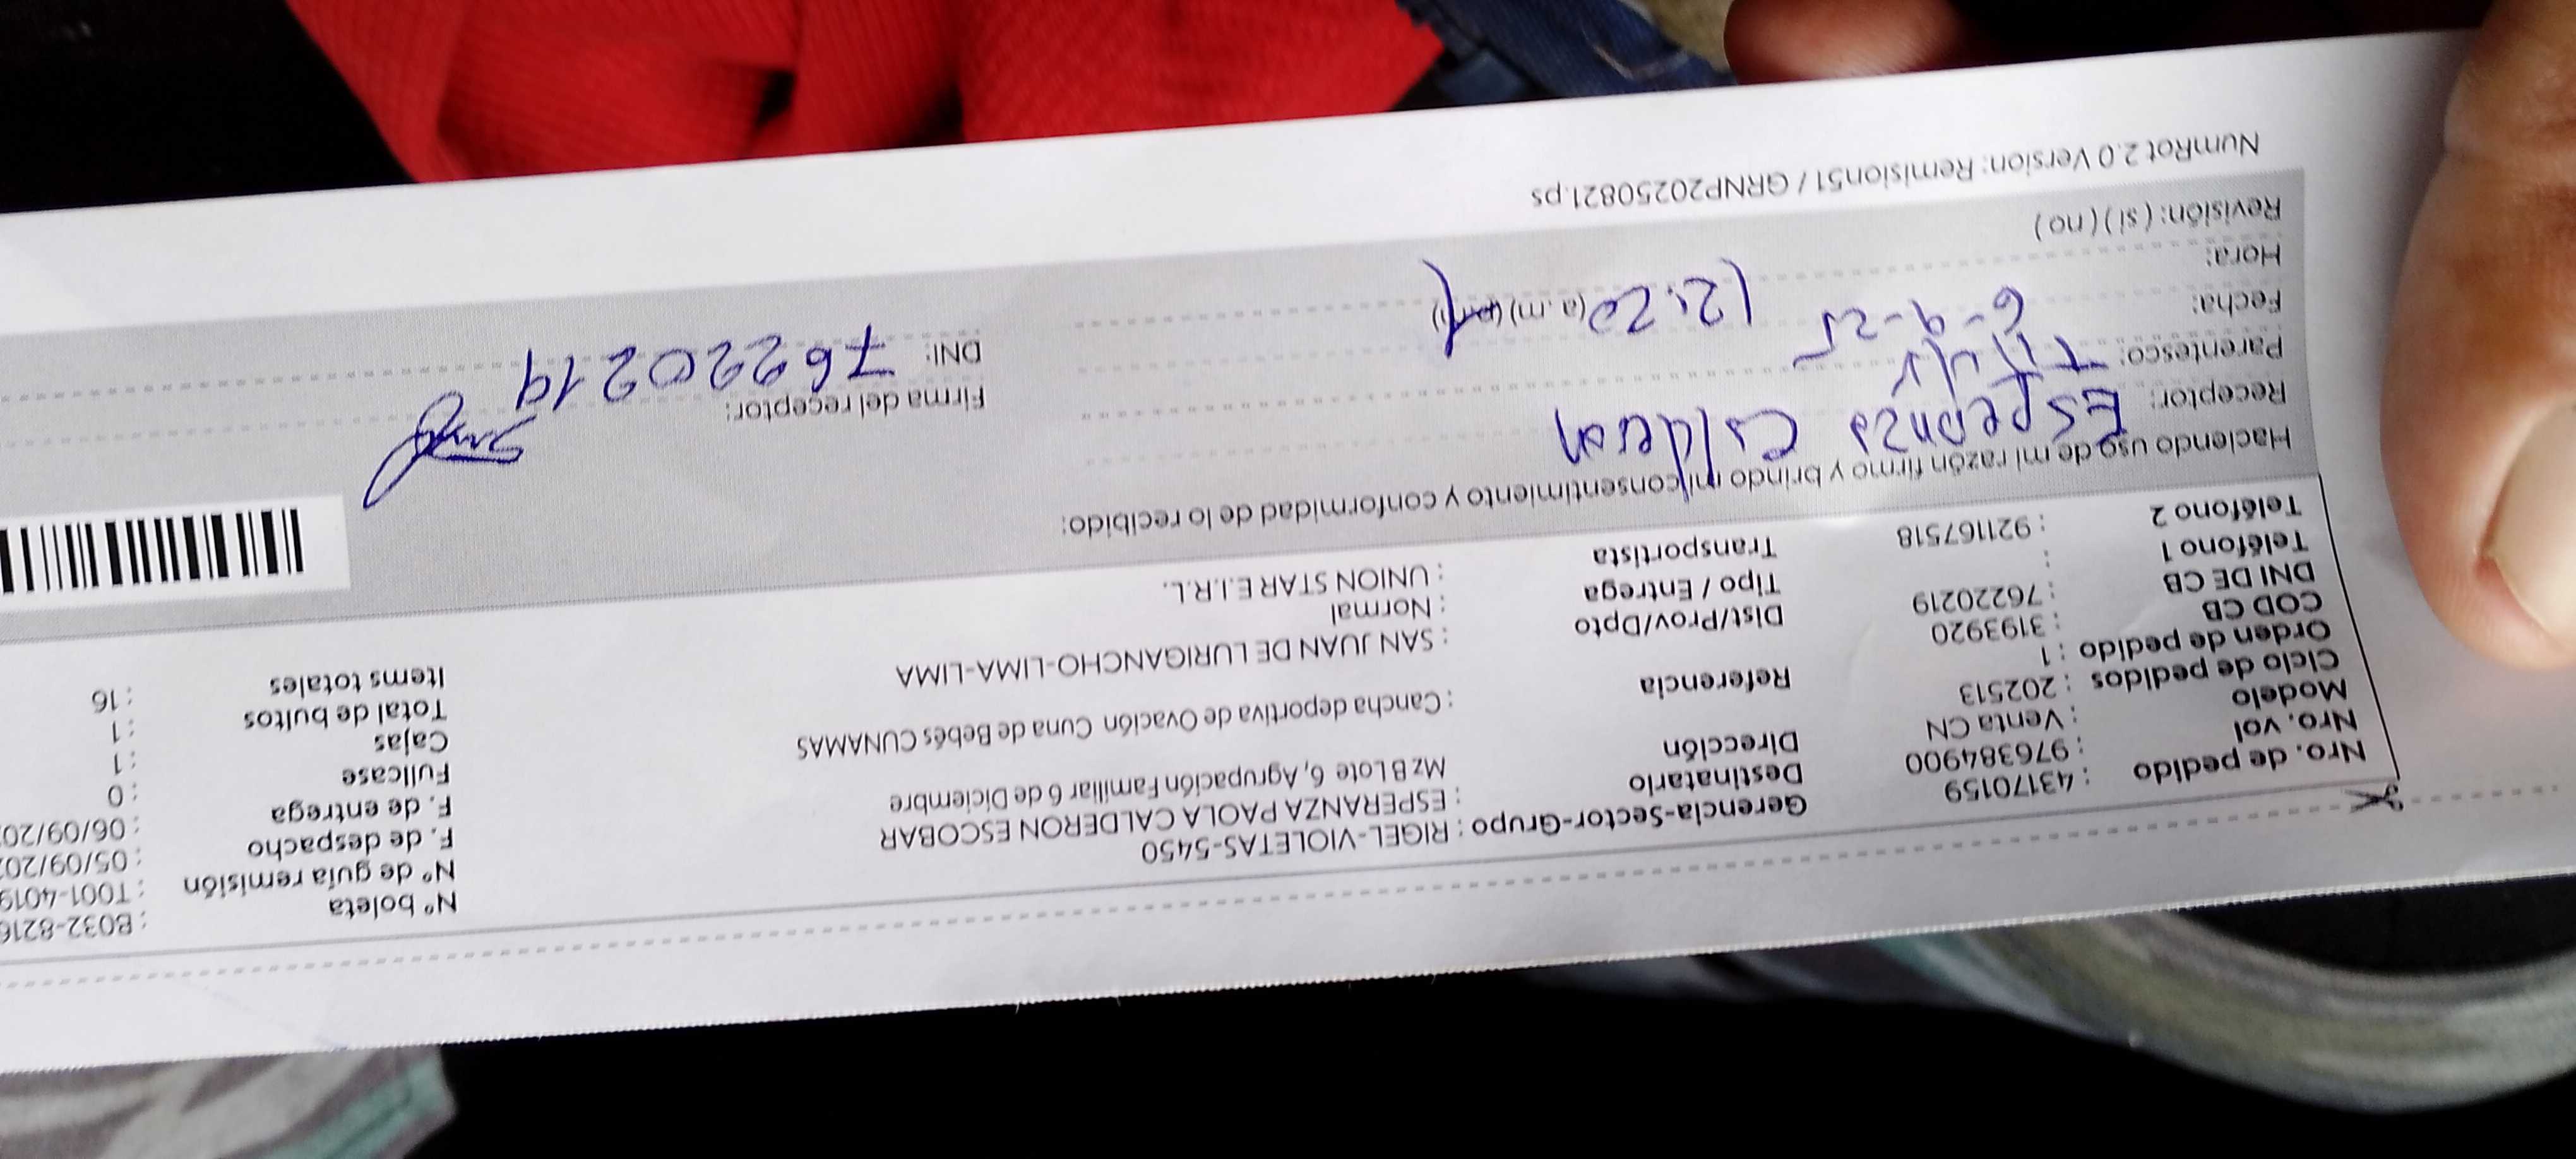 Nro. de pedido : 43170159 Gerencia-Sector-Grupo : RIGEL-VIOLETAS-5450 N° boleta : B032-8216
Nro. vol : 976384900 Destinatario : ESPERANZA PAOLA CALDERON ESCOBAR N° de guía remisión : T001-4019
Modelo : Venta CN Dirección Mz B Lote 6, Agrupación Familiar 6 de Diciembre F. de despacho : 05/09/202
Ciclo de pedidos : 202513 Referencia : Cancha deportiva de Ovación Cuna de Bebés CUNAMAS F. de entrega : 06/09/202
Orden de pedido : 1 Dist/Prov/Dpto : SAN JUAN DE LURIGANCHO-LIMA-LIMA Fullcase : 0
COD CB : 3193920 Tipo / Entrega : Normal Cajas : 1
DNI DE CB : 76220219 Transportista : UNION STAR E.I.R.L. Total de bultos : 1
Teléfono 1 : Items totales : 16
Teléfono 2 : 921167518
Haciendo uso de mi razón firmo y brindo mi consentimiento y conformidad de lo recibido:
Receptor: Esperanza Calderon Firma del receptor:
Parentesco: Titular DNI: 76220219
Fecha: 6-9-25
Hora: 12:20 (a.m) (p.m)
Revisión: ( si ) ( no )
NumRot 2.0 Version: Remision51 / GRNP20250821.ps